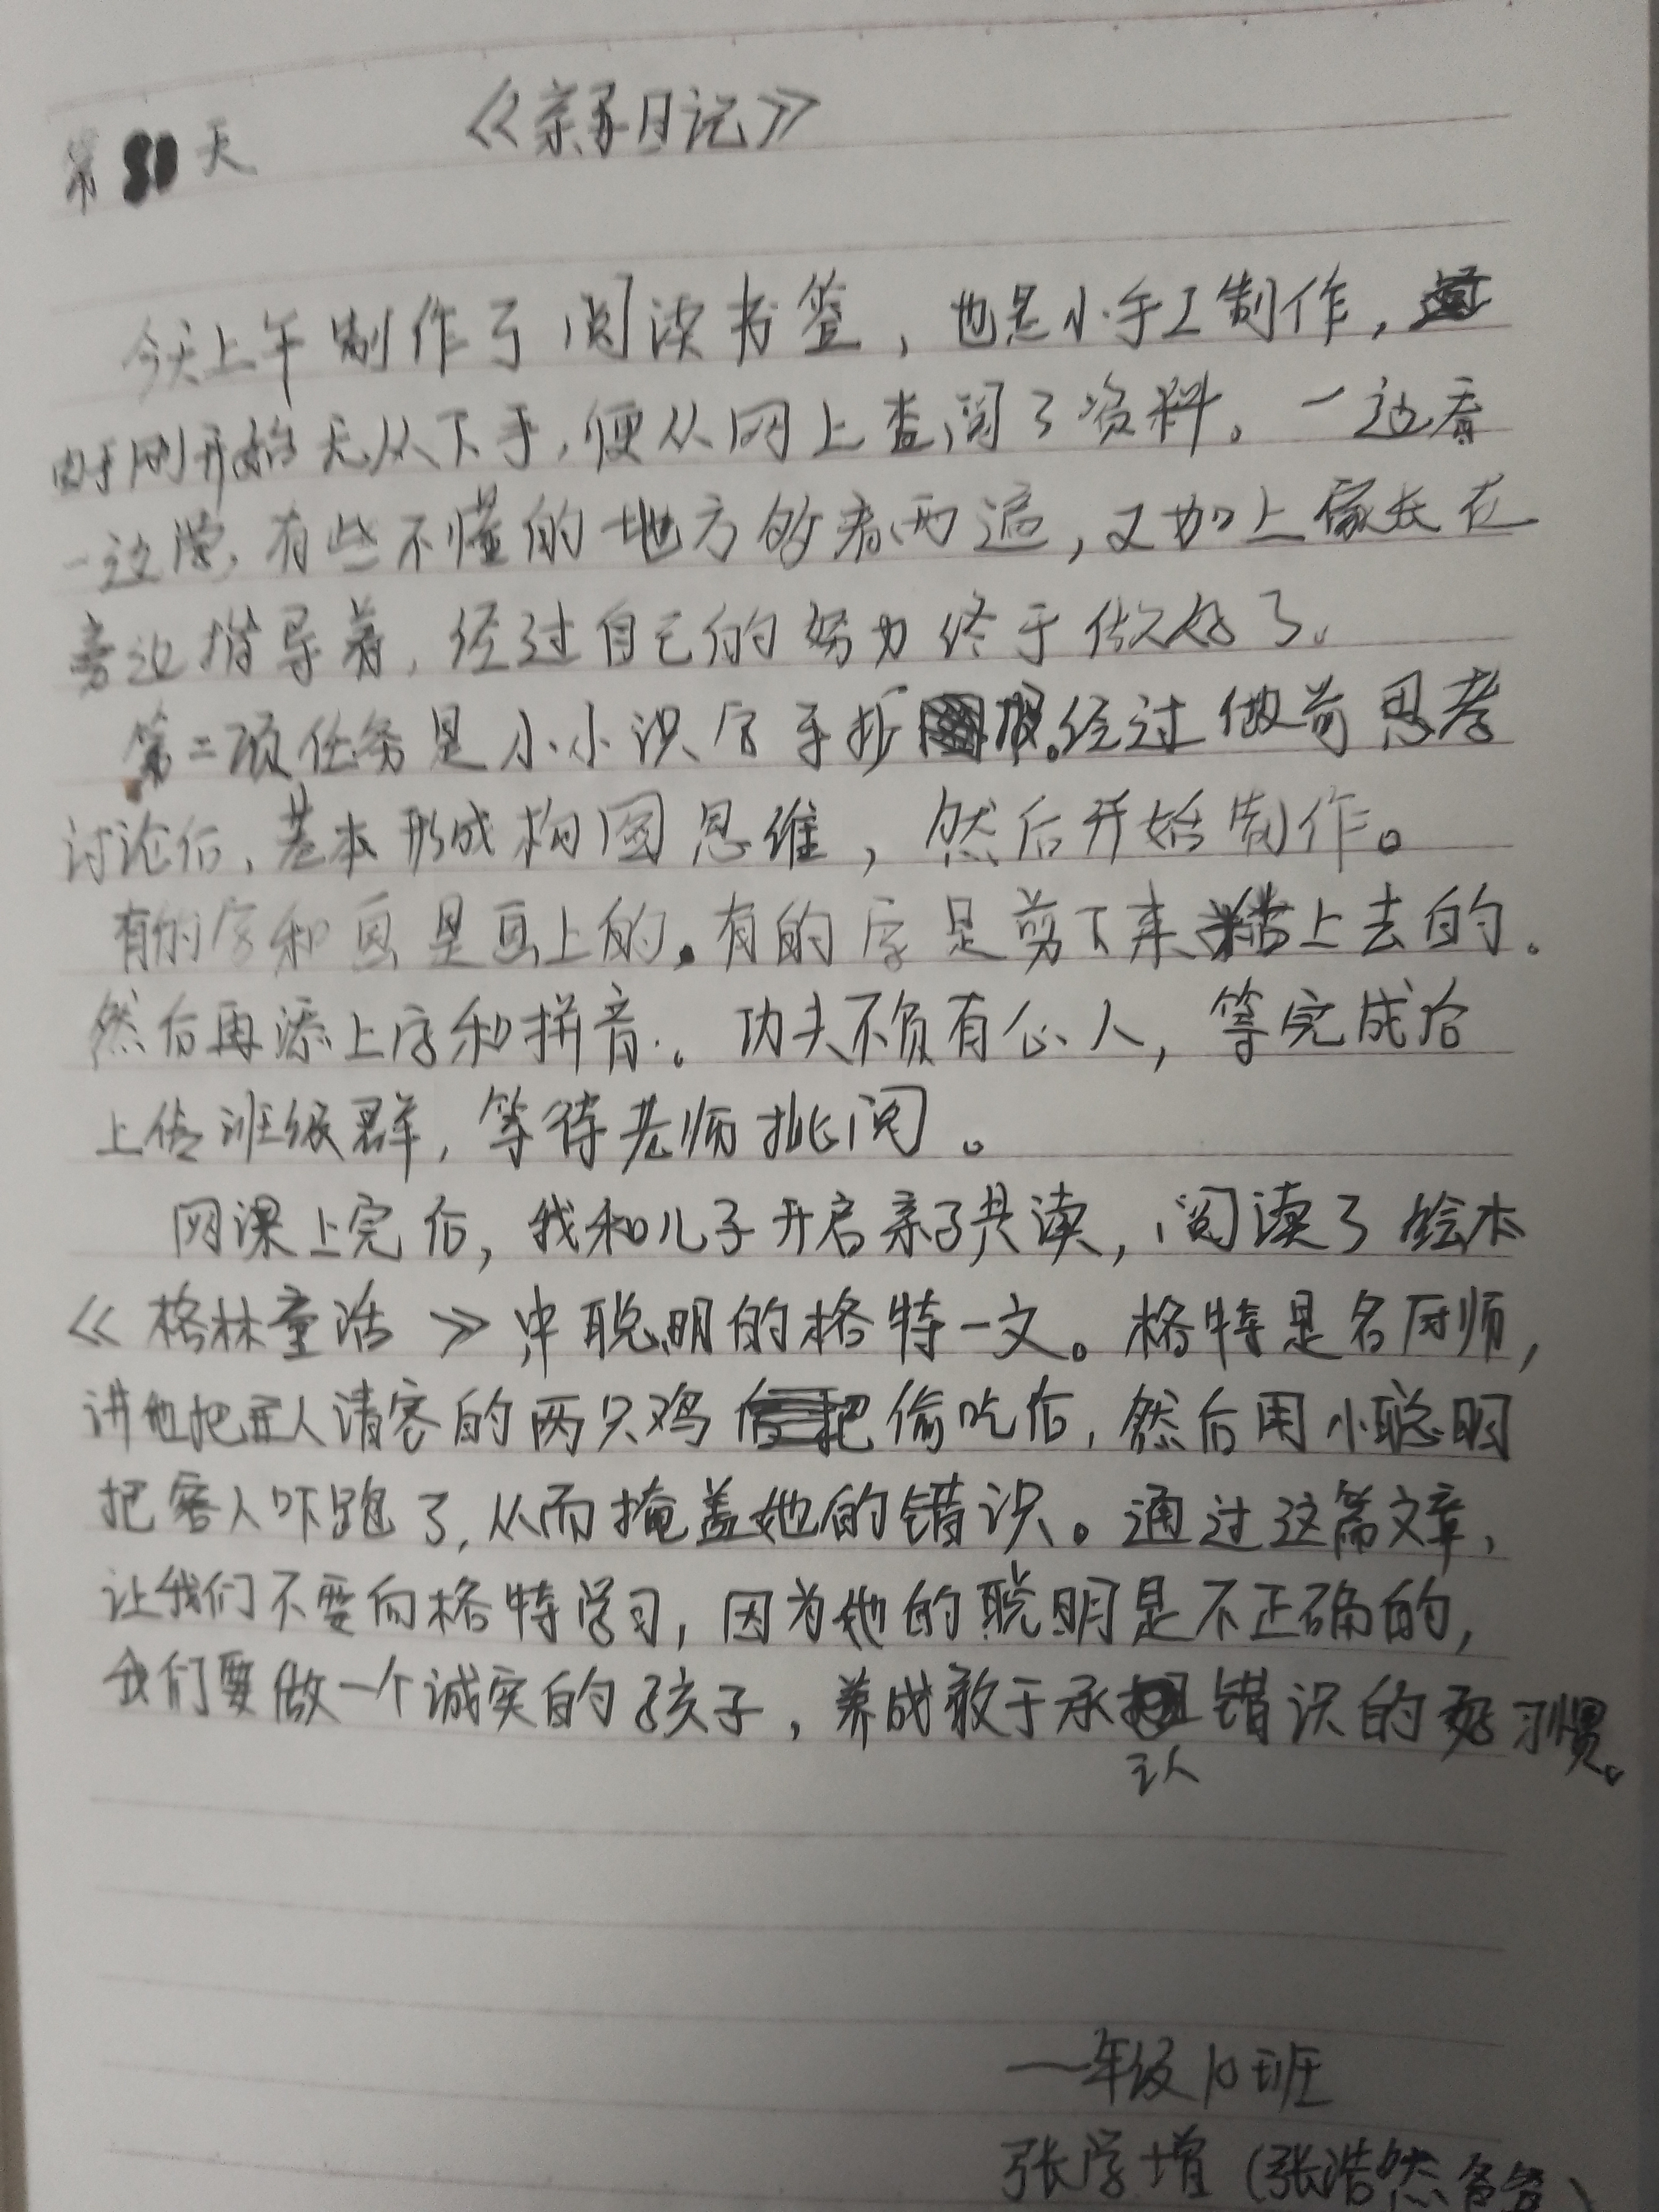 《亲子日记》
第81天
今天上午制作了阅读书签，也是小手工制作，
由于刚开始无从下手，便从网上查阅了资料。一边看
一边学，有些不懂的地方多看两遍，又加上家长在
旁边指导着，经过自己的努力终于做好了。
第二项任务是小小识字手抄报。经过做前思考
讨论后，基本形成构图思维，然后开始制作。
有的字和画是画上的，有的字是剪下来粘上去的。
然后再添上字和拼音。功夫不负有心人，等完成后
上传班级群，等待老师批阅。
网课上完后，我和儿子开启亲子共读，阅读了绘本
《格林童话》中聪明的格特一文。格特是名厨师，
讲他把主人请客的两只鸡偷吃后，然后用小聪明
把客人吓跑了，从而掩盖她的错识。通过这篇文章，
让我们不要向格特学习，因为他的聪明是不正确的，
我们要做一个诚实的孩子，养成敢于承认错识的好习惯。
一年级10班
张学增（张浩然爸爸）